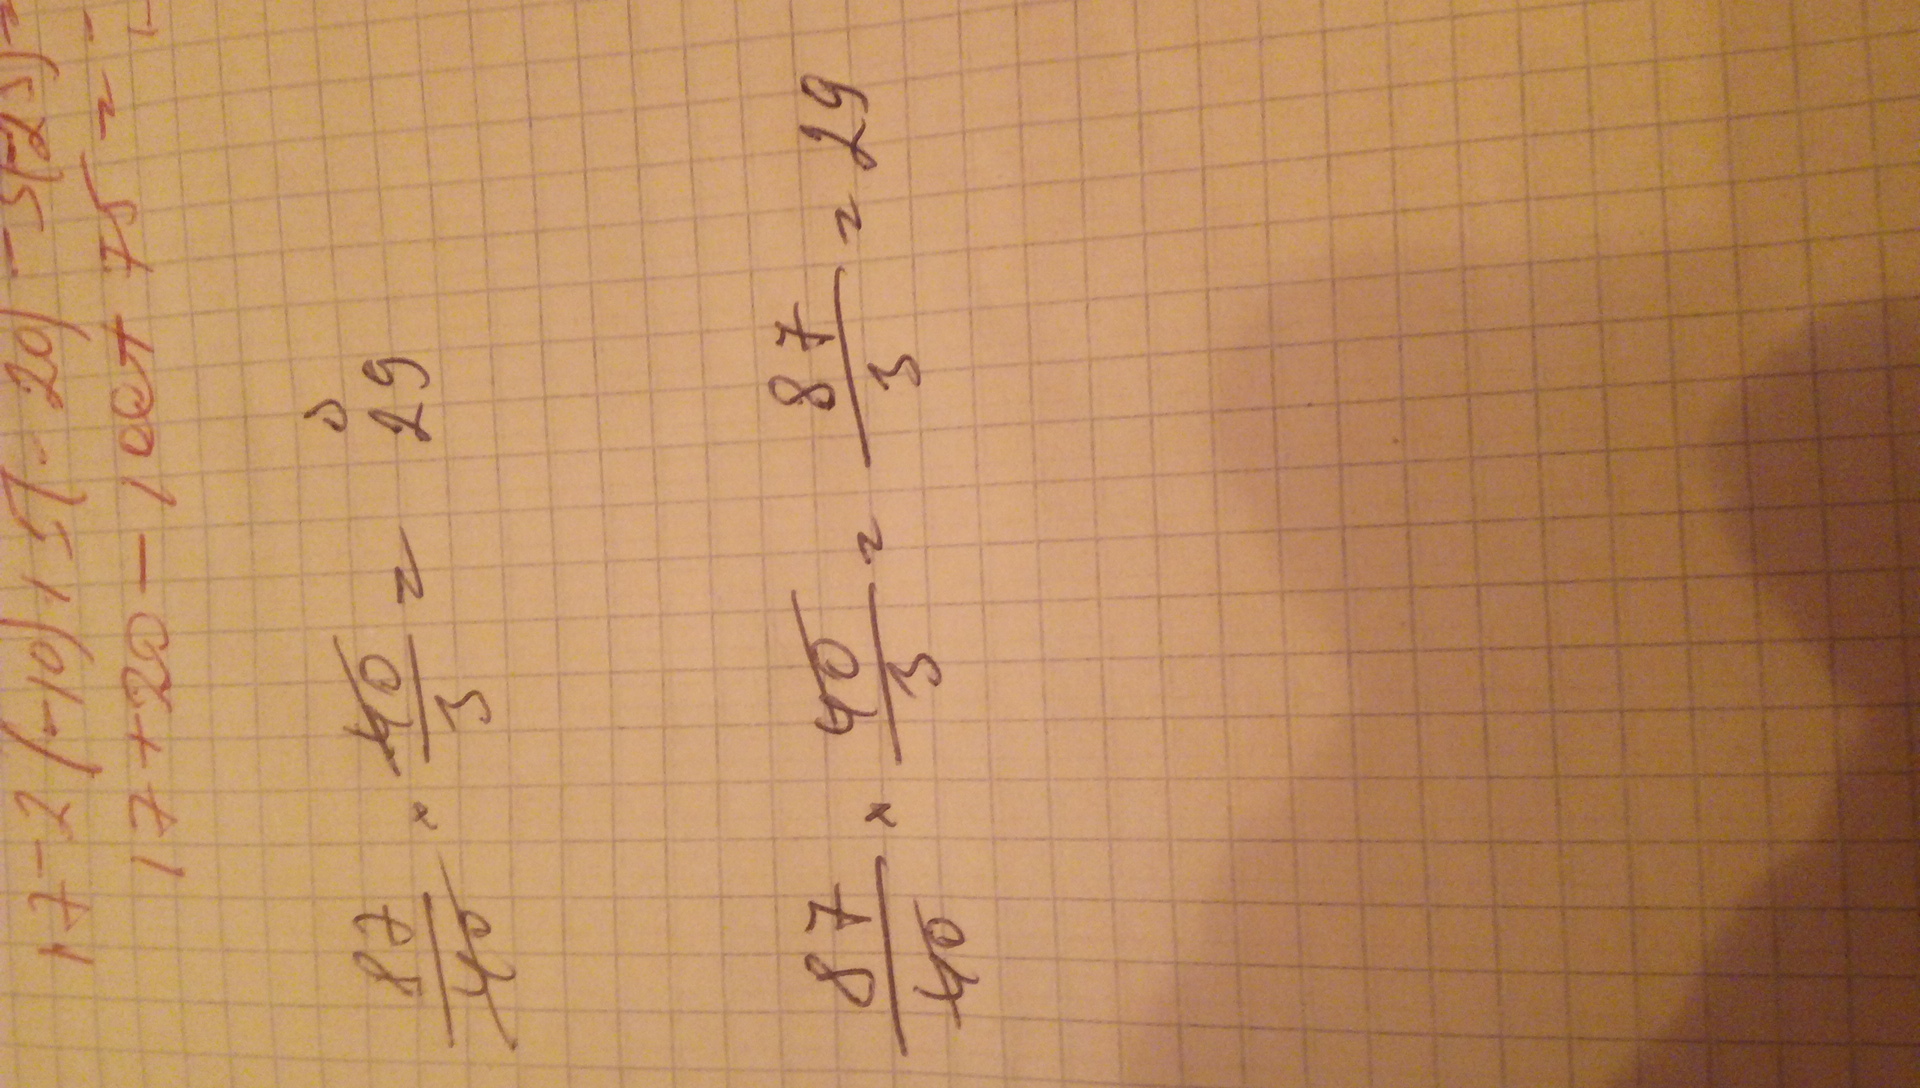 17-2(-10)+5(-20)-3(-25)=
17+20-100+75=
87/40 · 40/3 = 29
87/40 × 40/3 = 87/3 = 29